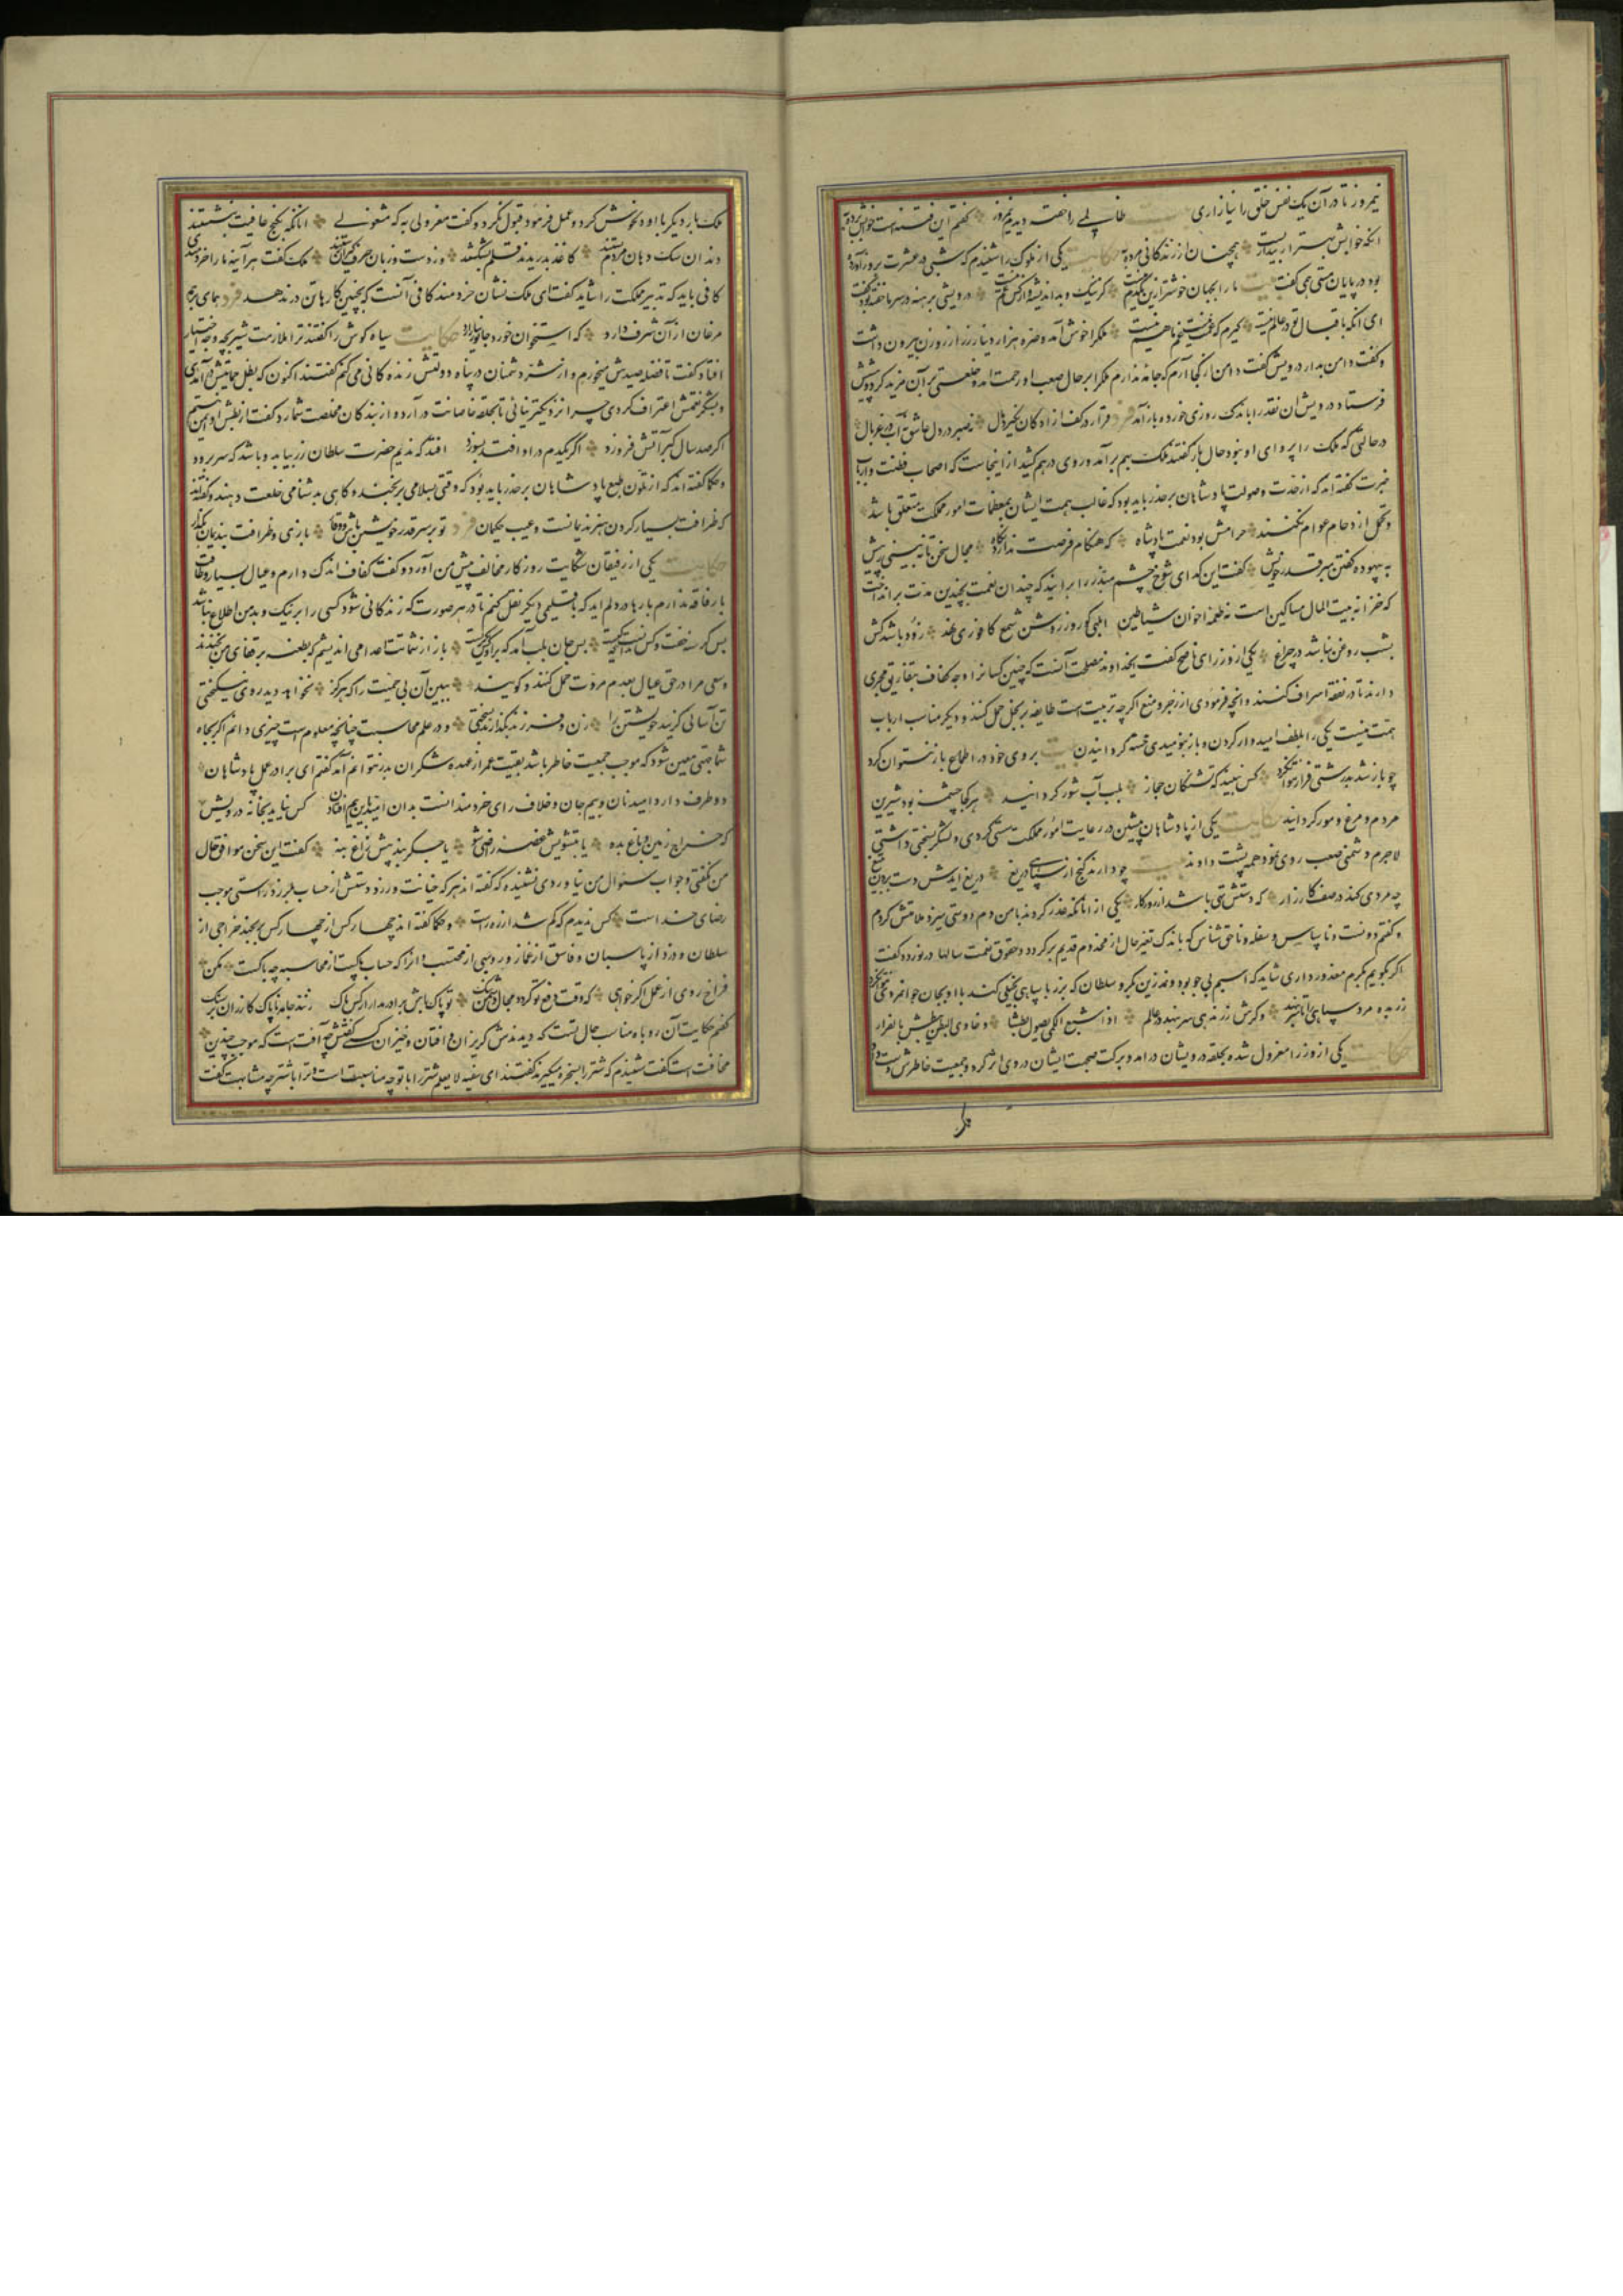 نیمروز تا در آن یک نفس خلق را نیازاری بیت ظالمی را خفته دیدم نیمروز گفتم این فتنه است خوابش برده به
آنکه خوابش بهتر از بیداریست همچنان از زندگانی مرده به حکایت یکی از ملوک را شنیدم که شبی در عشرت بروز آورده
بود در پایان مستی همی گفت بیت ما را بجهان خوشتر ازین یکدم نیست کز نیک و بد اندیشه و از کس غم نیست درویشی برهنه در سرما خفته بود گفت
ای آنکه باقبال تو در عالم نیست گیرم که غمت نیست غم ما هم نیست ملک را خوش آمد و صره هزار دینار زر از روزن بیرون داشت
و گفت دامن بدار درویش گفت دامن از کجا آرم که جامه ندارم ملک را بر حال صعب او رحمت آمد و خلعتی بر آن مزید کرد و پیشش
فرستاد درویش آن نقد را باندک روزی خورد و باز آمد فرد قرار در کف آزادگان نگیرد مال نه صبر در دل عاشق نه آب در غربال
در حالتی که ملک را پروای او نبود حال بازگفتند ملک بهم بر آمد و روی در هم کشید از اینجاست که اصحاب فطنت و ارباب
خبرت گفته اند که از حدت و صولت پادشاهان بر حذر باید بود که غالب همت ایشان بمعظمات امور مملکت متعلق باشد
و تحمل ازدحام عوام نکنند حرامش بود نعمت پادشاه که هنگام فرصت ندارد نگاه مجال سخن تا نبینی ز پیش
به بیهوده گفتن مبر قدر خویش گفت این گدای شوخ چشم مبذر را برانید که چندان نعمت بچندین مدت برانداخت
که خزانه بیت المال مساکین است نه طعمه اخوان شیاطین ابلهی کو روز روشن شمع کافوری نهد زود باشد کش
بشب روغن نباشد در چراغ یکی از وزرای ناصح گفت ای خداوند مصلحت آنست که چنین کسان را وجه کفاف بتفاریق مجری
دارند تا در نفقه اسراف نکنند و آنچه فرمودی از زجر و منع اگر چه تربیت است طایفه بر بخل حمل کنند و دیگر مناسب ارباب
همت نیست یکی را بلطف امیدوار کردن و باز بنومیدی خسته گردانیدن بیت بروی خود در اطماع باز نتوان کرد
چو باز شد بدرشتی فراز نتوان کرد کس نبیند که تشنگان حجاز بلب آب شور گرد آیند هر کجا چشمه بود شیرین
مردم و مرغ و مور گرد آیند حکایت یکی از پادشاهان پیشین در رعایت امور مملکت سستی کردی و لشکر بسختی داشتی
لاجرم دشمنی صعب روی نمود همه پشت دادند بیت چو دارند گنج از سپاهی دریغ دریغ آیدش دست بردن بتیغ
چه مردی کند در صف کارزار که دستش تهی باشد از روزگار یکی از آنانکه غدر کردند با من دم دوستی میزد ملامتش کردم
و گفتم دونست و ناسپاس و سفله و ناحق شناس که باندک تغیر حال از مخدوم قدیم برگردد و حقوق نعمت سالها در نوردد گفت
اگر بگویم بکرم معذور داری شاید که اسبم بی جو بود و نمدزین بگرو سلطان که بزر با سپاهی بخیلی کند با او بجان جوانمردی نتوان کرد
زر بده مرد سپاهی را تا سر بنهد وگرش زر ندهی سر بنهد در عالم اذا شبع الکمی یصول بطشا و خاوی البطن یبطش بالفرار
حکایت یکی از وزرا معزول شده بحلقه درویشان درآمد و برکت صحبت ایشان در وی اثر کرد و جمعیت خاطرش دست داد
ملک بار دیگر با او دلخوش کرد و عمل فرمود قبول نکرد و گفت معزولی به که مشغولی آنانکه بکنج عافیت بنشستند
دندان سگ و دهان مردم بستند کاغذ بدریدند و قلم بشکستند وز دست و زبان حرف گیران رستند ملک گفت هر آینه ما را خردمندی
کافی باید که تدبیر مملکت را شاید گفت ای ملک نشان خردمند کافی آنست که بچنین کارها تن در ندهد فرد همای بر همه
مرغان از آن شرف دارد که استخوان خورد و جانور نیازارد حکایت سیاه گوش را گفتند ترا ملازمت شیر بچه وجه اختیار
افتاد گفت تا فضله صیدش میخورم و از شر دشمنان در پناه دولتش زندگانی می کنم گفتند اکنون که بظل حمایتش درآمدی
و بشکر نعمتش اعتراف کردی چرا نزدیکتر نیائی تا بحلقه خاصانت درآرد و از بندگان مخلصت شمارد گفت از بطش او ایمن نیستم
اگر صد سال گبر آتش فروزد اگر یکدم در او افتد بسوزد افتد که ندیم حضرت سلطان زر بیابد و باشد که سر برود
و حکما گفته اند که از تلون طبع پادشاهان بر حذر باید بود که وقتی بسلامی برنجند و گاهی بدشنامی خلعت دهند و گفته اند
که ظرافت بسیار کردن هنر ندیمانست و عیب حکیمان فرد تو بر سر قدر خویشتن باش و وقار بازی و ظرافت بندیمان بگذار
حکایت یکی از رفیقان شکایت روزگار مخالف پیش من آورد و گفت کفاف اندک دارم و عیال بسیار و طاقت
بار فاقه ندارم بارها در دلم آید که باقلیمی دیگر نقل کنم تا در هر صورت که زندگانی شود کسی را بر نیک و بد من اطلاع نباشد
بس گرسنه خفت و کس ندانست که کیست بس جان بلب آمد که برو کس نگریست باز از شماتت اعدا می اندیشم که بطعنه بر قفای من بخندند
و سعی مرا در حق عیال بعدم مروت حمل کنند و گویند ببین آن بی حمیت را که هرگز نخواهد دید روی نیکبختی
تن آسانی گزیند خویشتن را زن و فرزند بگذارد بسختی و در علم محاسبت چنانچه معلوم است چیزی دانم اگر بجاه
شما جهتی معین شود که موجب جمعیت خاطر باشد بقیت عمر از عهده شکر آن بدر نتوانم آمد گفتم ای برادر عمل پادشاهان
دو طرف دارد امید نان و بیم جان و خلاف رای خردمندانست بدان امید باین بیم افتادن کس نیاید بخانه درویش
که خراج زمین و باغ بده یا بتشویش غصه راضی شو یا جگربند پیش زاغ بنه گفت این سخن موافق حال
من نگفتی و جواب سئوال من نیاوردی نشنیده که گفته اند هر که خیانت ورزد دستش از حساب بلرزد راستی موجب
رضای خداست کس ندیدم که گم شد از ره راست و حکما گفته اند چهار کس از چهار کس برنجند خراجی از
سلطان و دزد از پاسبان و فاسق از غماز و روسپی از محتسب و آنرا که حساب پاکست از محاسبه چه باکست مکن
فراخ روی از عمل اگر خواهی که وقت رفع تو گردد مجال دشمن تنگ تو پاک باش برادر مدار از کس باک زنند جامه ناپاک گازران بر سنگ
گفتم حکایت آن روباه مناسب حال تست که دیدندش گریزان و افتان و خیزان کسی گفتش چه آفت است که موجب چندین
مخافت است گفت شنیدم که شتر را بسخره میگیرند گفتند ای سفیه لایعلم شتر را با تو چه مناسبت است و ترا با شتر چه مشابهت گفت